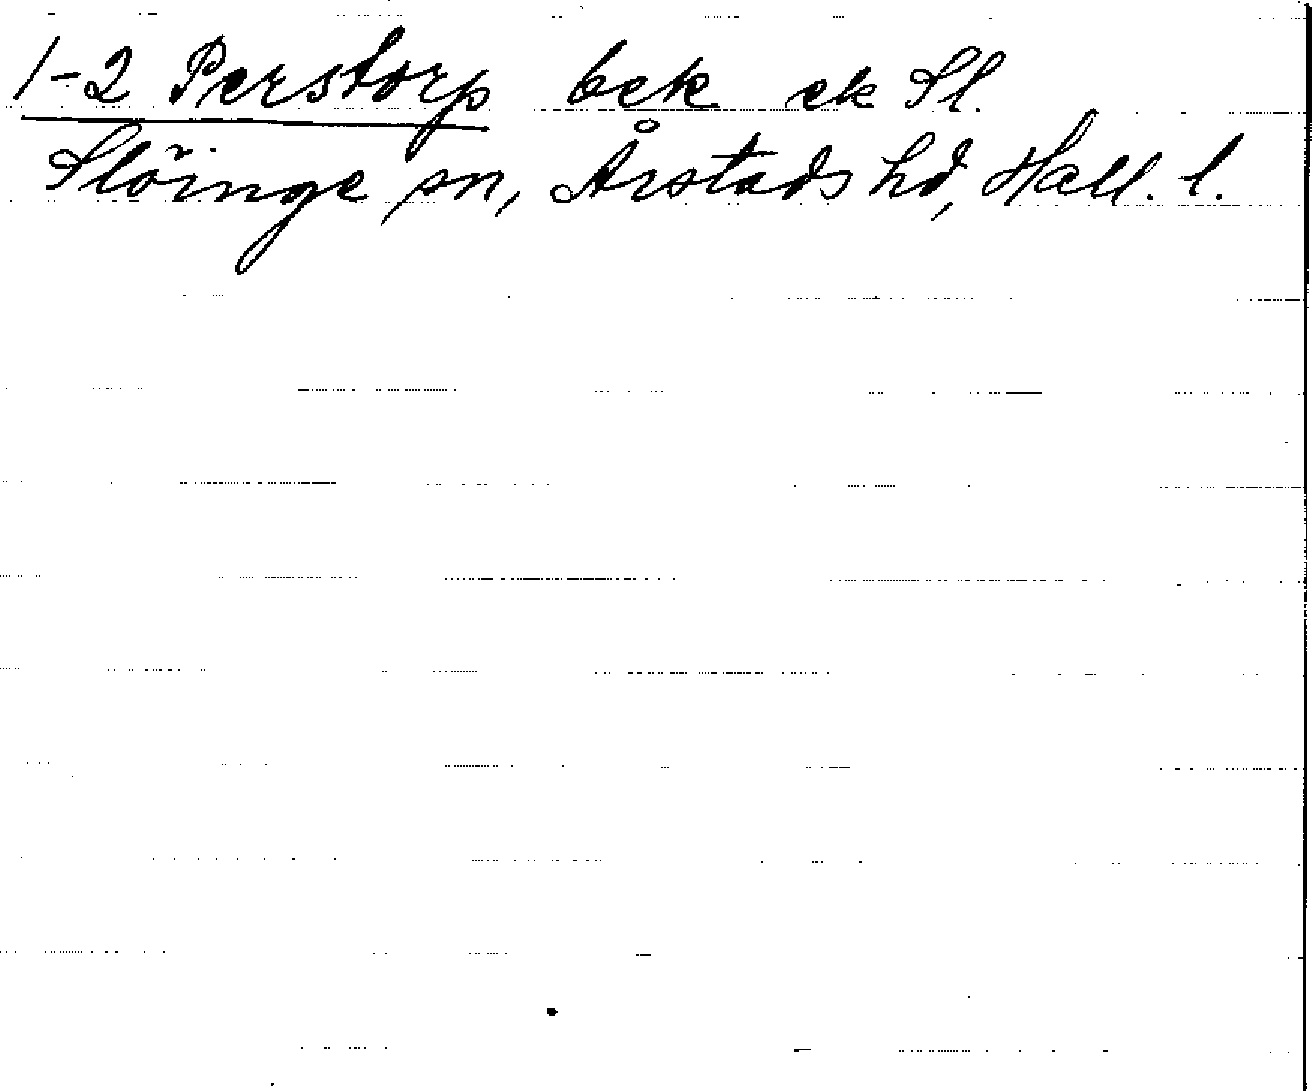 1-2 Perstorp bek ek Sl.
Slöinge sn, Årstads hd, Hall. l.